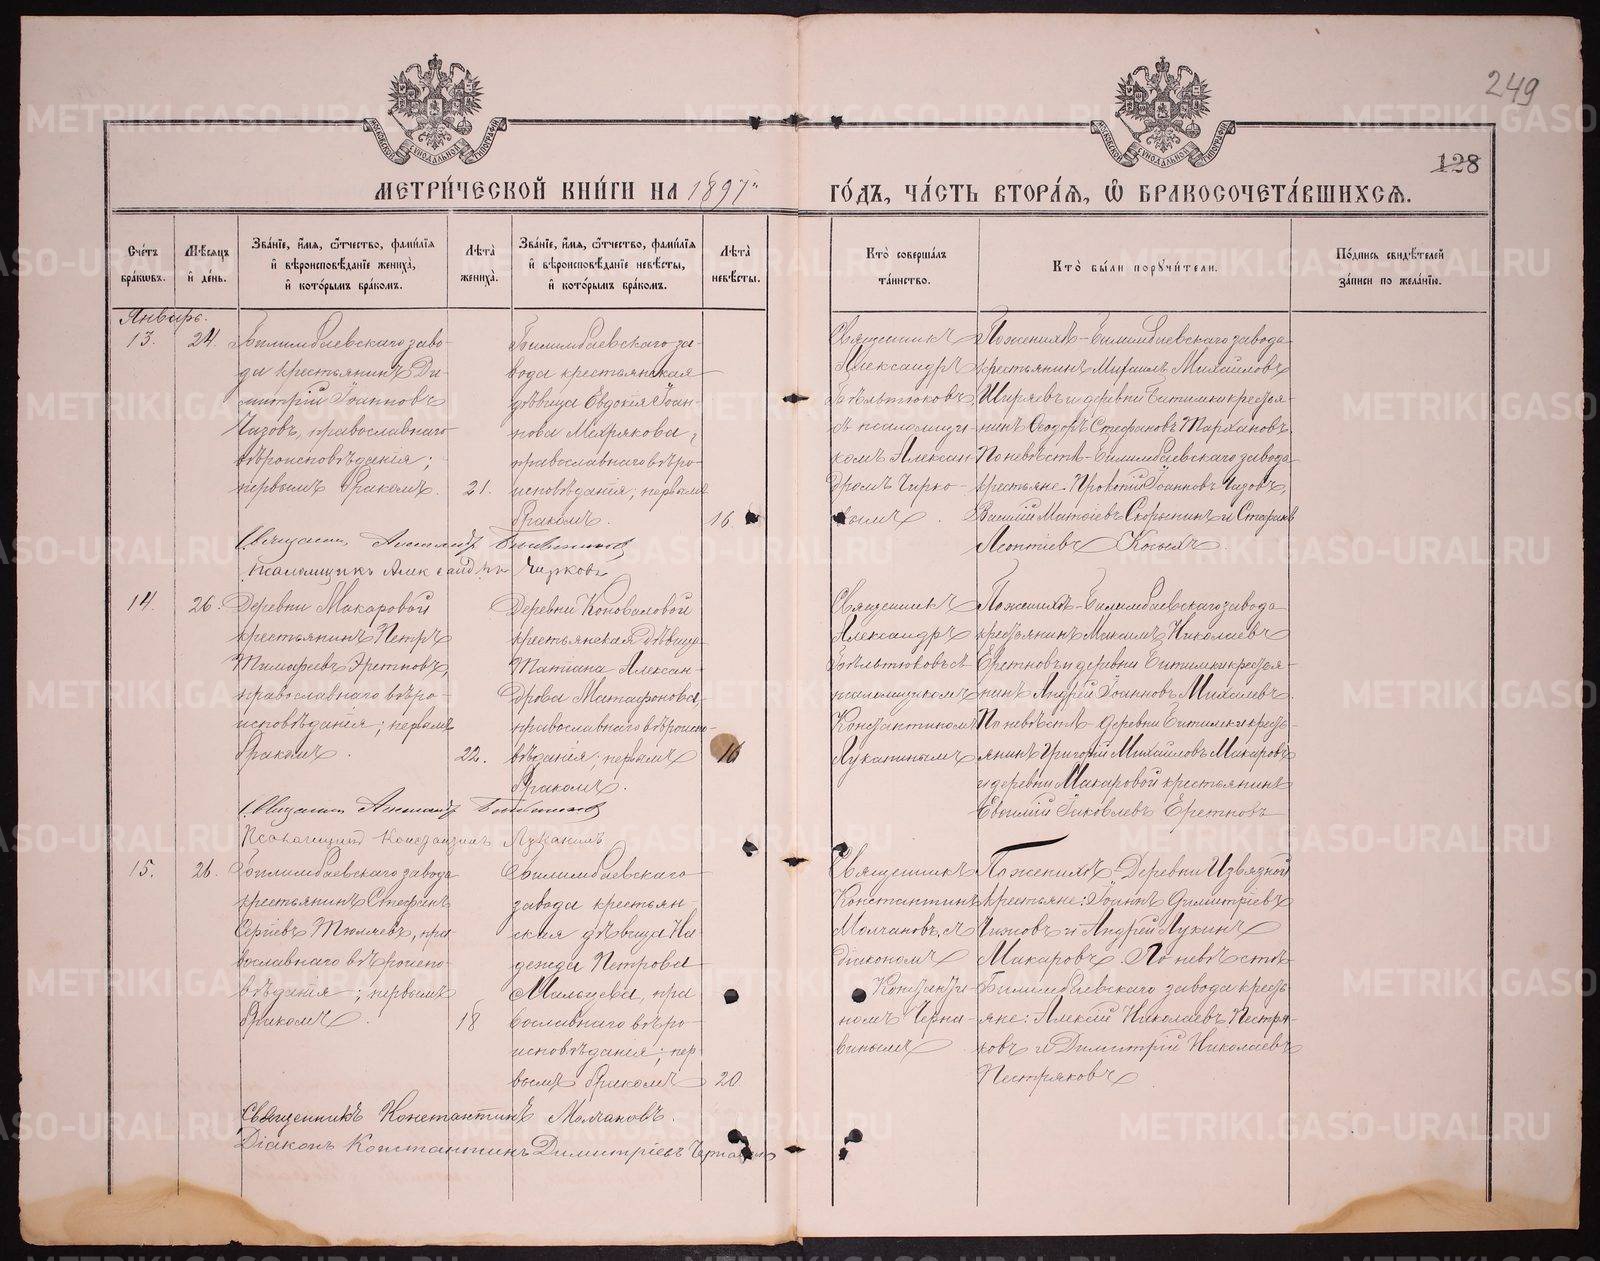 249
128
МЕТРИ́ЧЕСКОЙ КНИ́ГИ НА 1897
ГО́ДЪ, ЧА́СТЬ ВТОРА́Я, Ѿ БРАКОСОЧЕТА́ВШИХСЯ.
Сче́тъ бра́кωвъ.
Мѣ́сяцъ и҆ де́нь.
Зва́нїе, и҆́мя, ѻ҆́тчество, фами́лїя
и҆ вѣроисповѣ́данїе жениха̀,
и҆ кото́рымъ бра́комъ.
Лѣ́та жениха̀.
Зва́нїе, и҆́мя, ѻ҆́тчество, фами́лїя
и҆ вѣроисповѣ́данїе невѣ́сты,
и҆ кото́рымъ бра́комъ.
Лѣ́та невѣ́сты.
Кто̀ соверша́лъ та́инство.
Кто̀ бы́ли порꙋчи́тели.
По́дпись свидѣ́телей за́писи по жела́нїю.
Январь.
13.
24.
Билимбаевскаго заво-
да крестьянинъ Ди-
митрій Іоанновъ
Чазовъ, православнаго
вѣроисповѣданія;
первымъ бракомъ.
21.
Билимбаевскаго за-
вода крестьянская
дѣвица Евдокія Іоан-
нова Мехрякова,
православнаго вѣро-
исповѣданія; первымъ
бракомъ.
16.
Священникъ
Александръ
съ псаломщи-
комъ Алексан-
дромъ Чирко-
вымъ.
По женихѣ - Билимбаевскаго завода
крестьянинъ Михаилъ Михайловъ
Ширяевъ и деревни Битимки крестья-
нинъ Ѳеодоръ Стефановъ Тархановъ.
По невѣстѣ - Билимбаевскаго завода
крестьяне Прокопій Іоанновъ Чазовъ,
Василій Матѳіевъ Скорынинъ и Стефанъ
Леонтіевъ Косыхъ.
Священникъ Александръ
Псаломщикъ Александръ Чирковъ
14.
26.
Деревни Макаровой
крестьянинъ Петръ
Тимофеевъ Эретновъ,
православнаго вѣро-
исповѣданія; первымъ
бракомъ.
22.
Деревни Коноваловой
крестьянская дѣвица
Татіана Алексан-
дрова Матафонова,
православнаго вѣроиспо-
вѣданія; первымъ
бракомъ.
16
Священникъ
Александръ
псаломщикомъ
Константиномъ
Лукanинымъ
По женихѣ - Билимбаевскаго завода
крестьянинъ Максимъ Николаевъ
Еретновъ и деревни Битимки крестья-
нинъ Андрей Іоанновъ Михалевъ.
По невѣстѣ - деревни Битимки кресть-
янинъ Григорій Михайловъ Макаровъ
и деревни Макаровой крестьянинъ
Евѳимій Іаковлевъ Еретновъ
Священникъ Александръ
Псаломщикъ Константинъ Луканинъ
15.
26.
Билимбаевскаго завода
крестьянинъ Стефанъ
Сергіевъ Тюляевъ, пра
вославнаго вѣроиспо-
вѣданія; первымъ
бракомъ.
18
Билимбаевскаго
завода крестьян-
ская дѣвица На-
дежда Петрова
Мальцева, пра
вославнаго вѣро-
исповѣданія; пер-
вымъ бракомъ
20.
Священникъ
Константинъ
Молчановъ, съ
діакономъ
Константи-
номъ Черна-
винымъ
По женихѣ - Деревни Извязной
крестьяне: Іоаннъ Димитріевъ
Чижовъ и Андрей Лукинъ
Макаровъ. По невѣстѣ
Билимбаевскаго завода кресть-
яне: Алексій Николаевъ Пестря-
ковъ и Димитрій Николаевъ
Пестряковъ
Священникъ Константинъ Молчановъ.
Діаконъ Константинъ Димитріевъ Чернавинъ